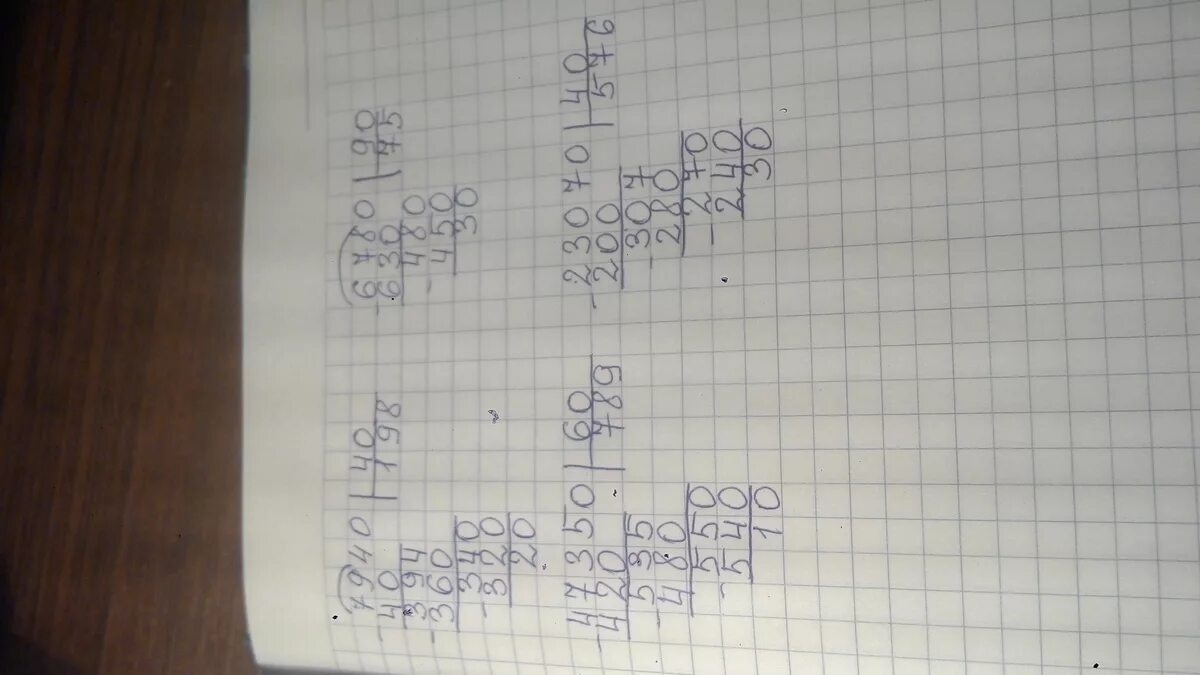 7940 | 40
-40 | 198
394
-360
340
-320
20
-6780 | 90
630 | 75
-480
450
30
-47350 | 60
420 | 789
-535
480
550
-540
10
-23070 | 40
200 | 576
-307
280
-270
240
30